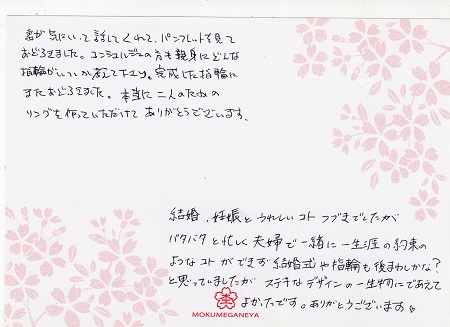 妻が気にいって話してくれて、パンフレットを見て
おどろきました。コンシェルジュの方も親身にどんな
指輪がいいか教えて下さり。完成した指輪に
またおどろきました。本当に二人のための
リングを作っていただけて ありがとうございます。
結婚、妊娠とうれしいコト つづきでしたが
バタバタと忙しく 夫婦で一緒に 一生涯の約束の
ようなコトができず 結婚式や指輪も後まわしかな?
と思っていましたが ステキなデザインの一生物にであえて
よかったです。ありがとうございます。
MOKUMEGANEYA